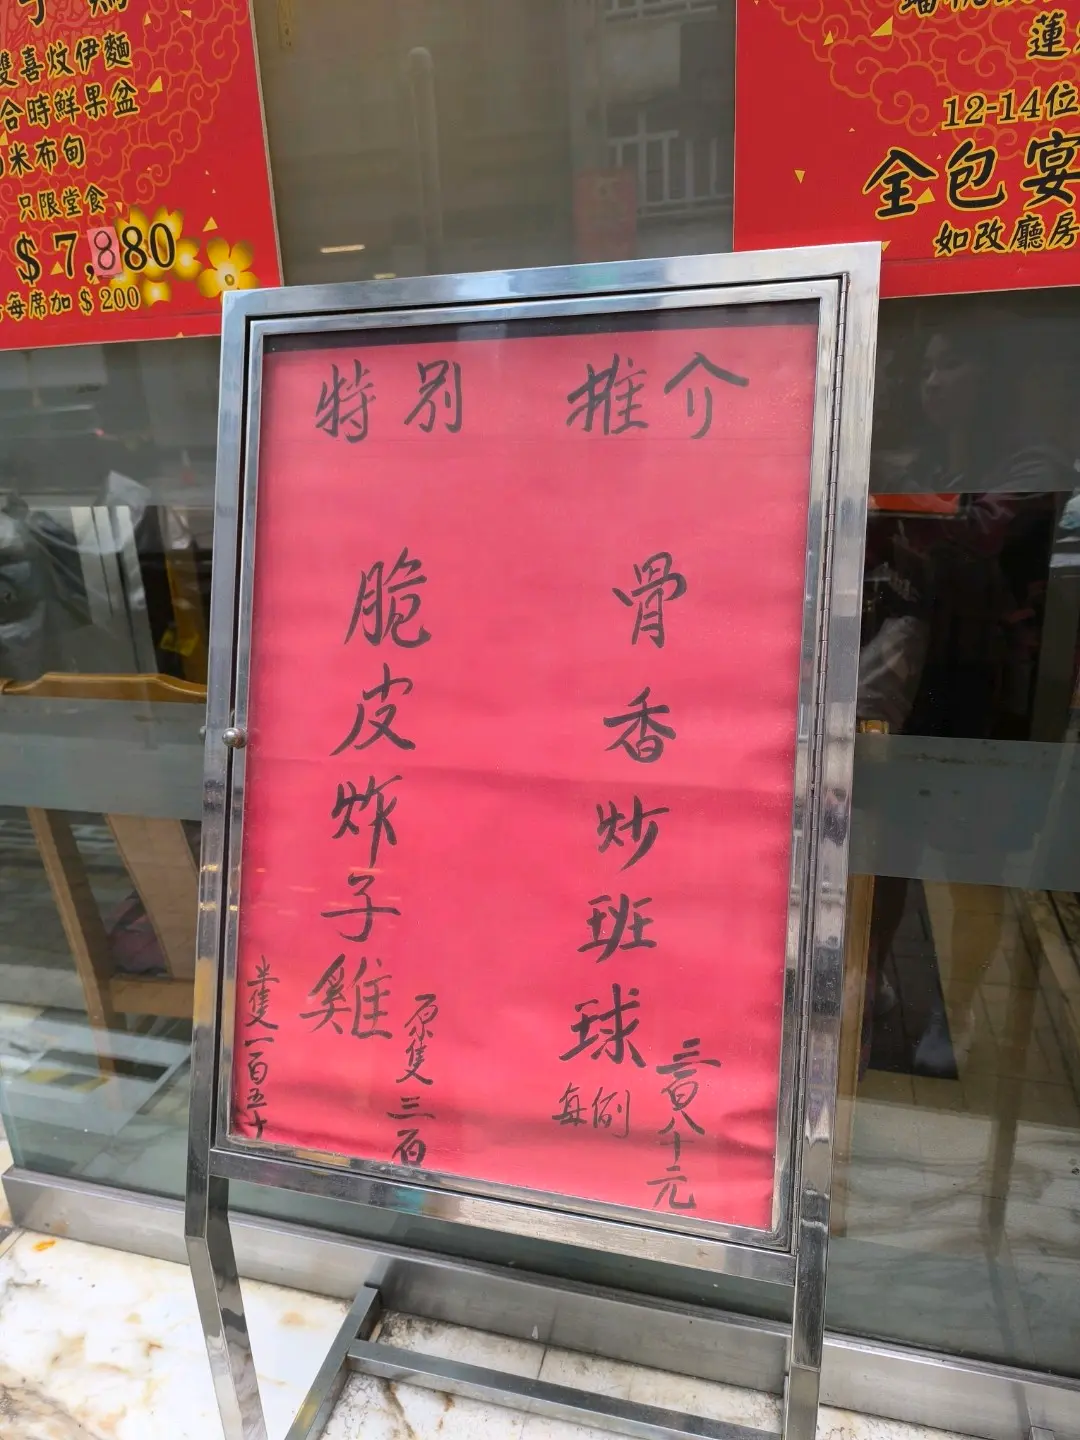 雙喜炆伊麵
合時鮮果盆
米布甸
只限堂食
$7,880
每席加$200
蓮
12-14位
全包宴
如改廳房
特別推介
骨香炒班球
每例
三百八十元
脆皮炸子雞
原隻三百
半隻一百五十